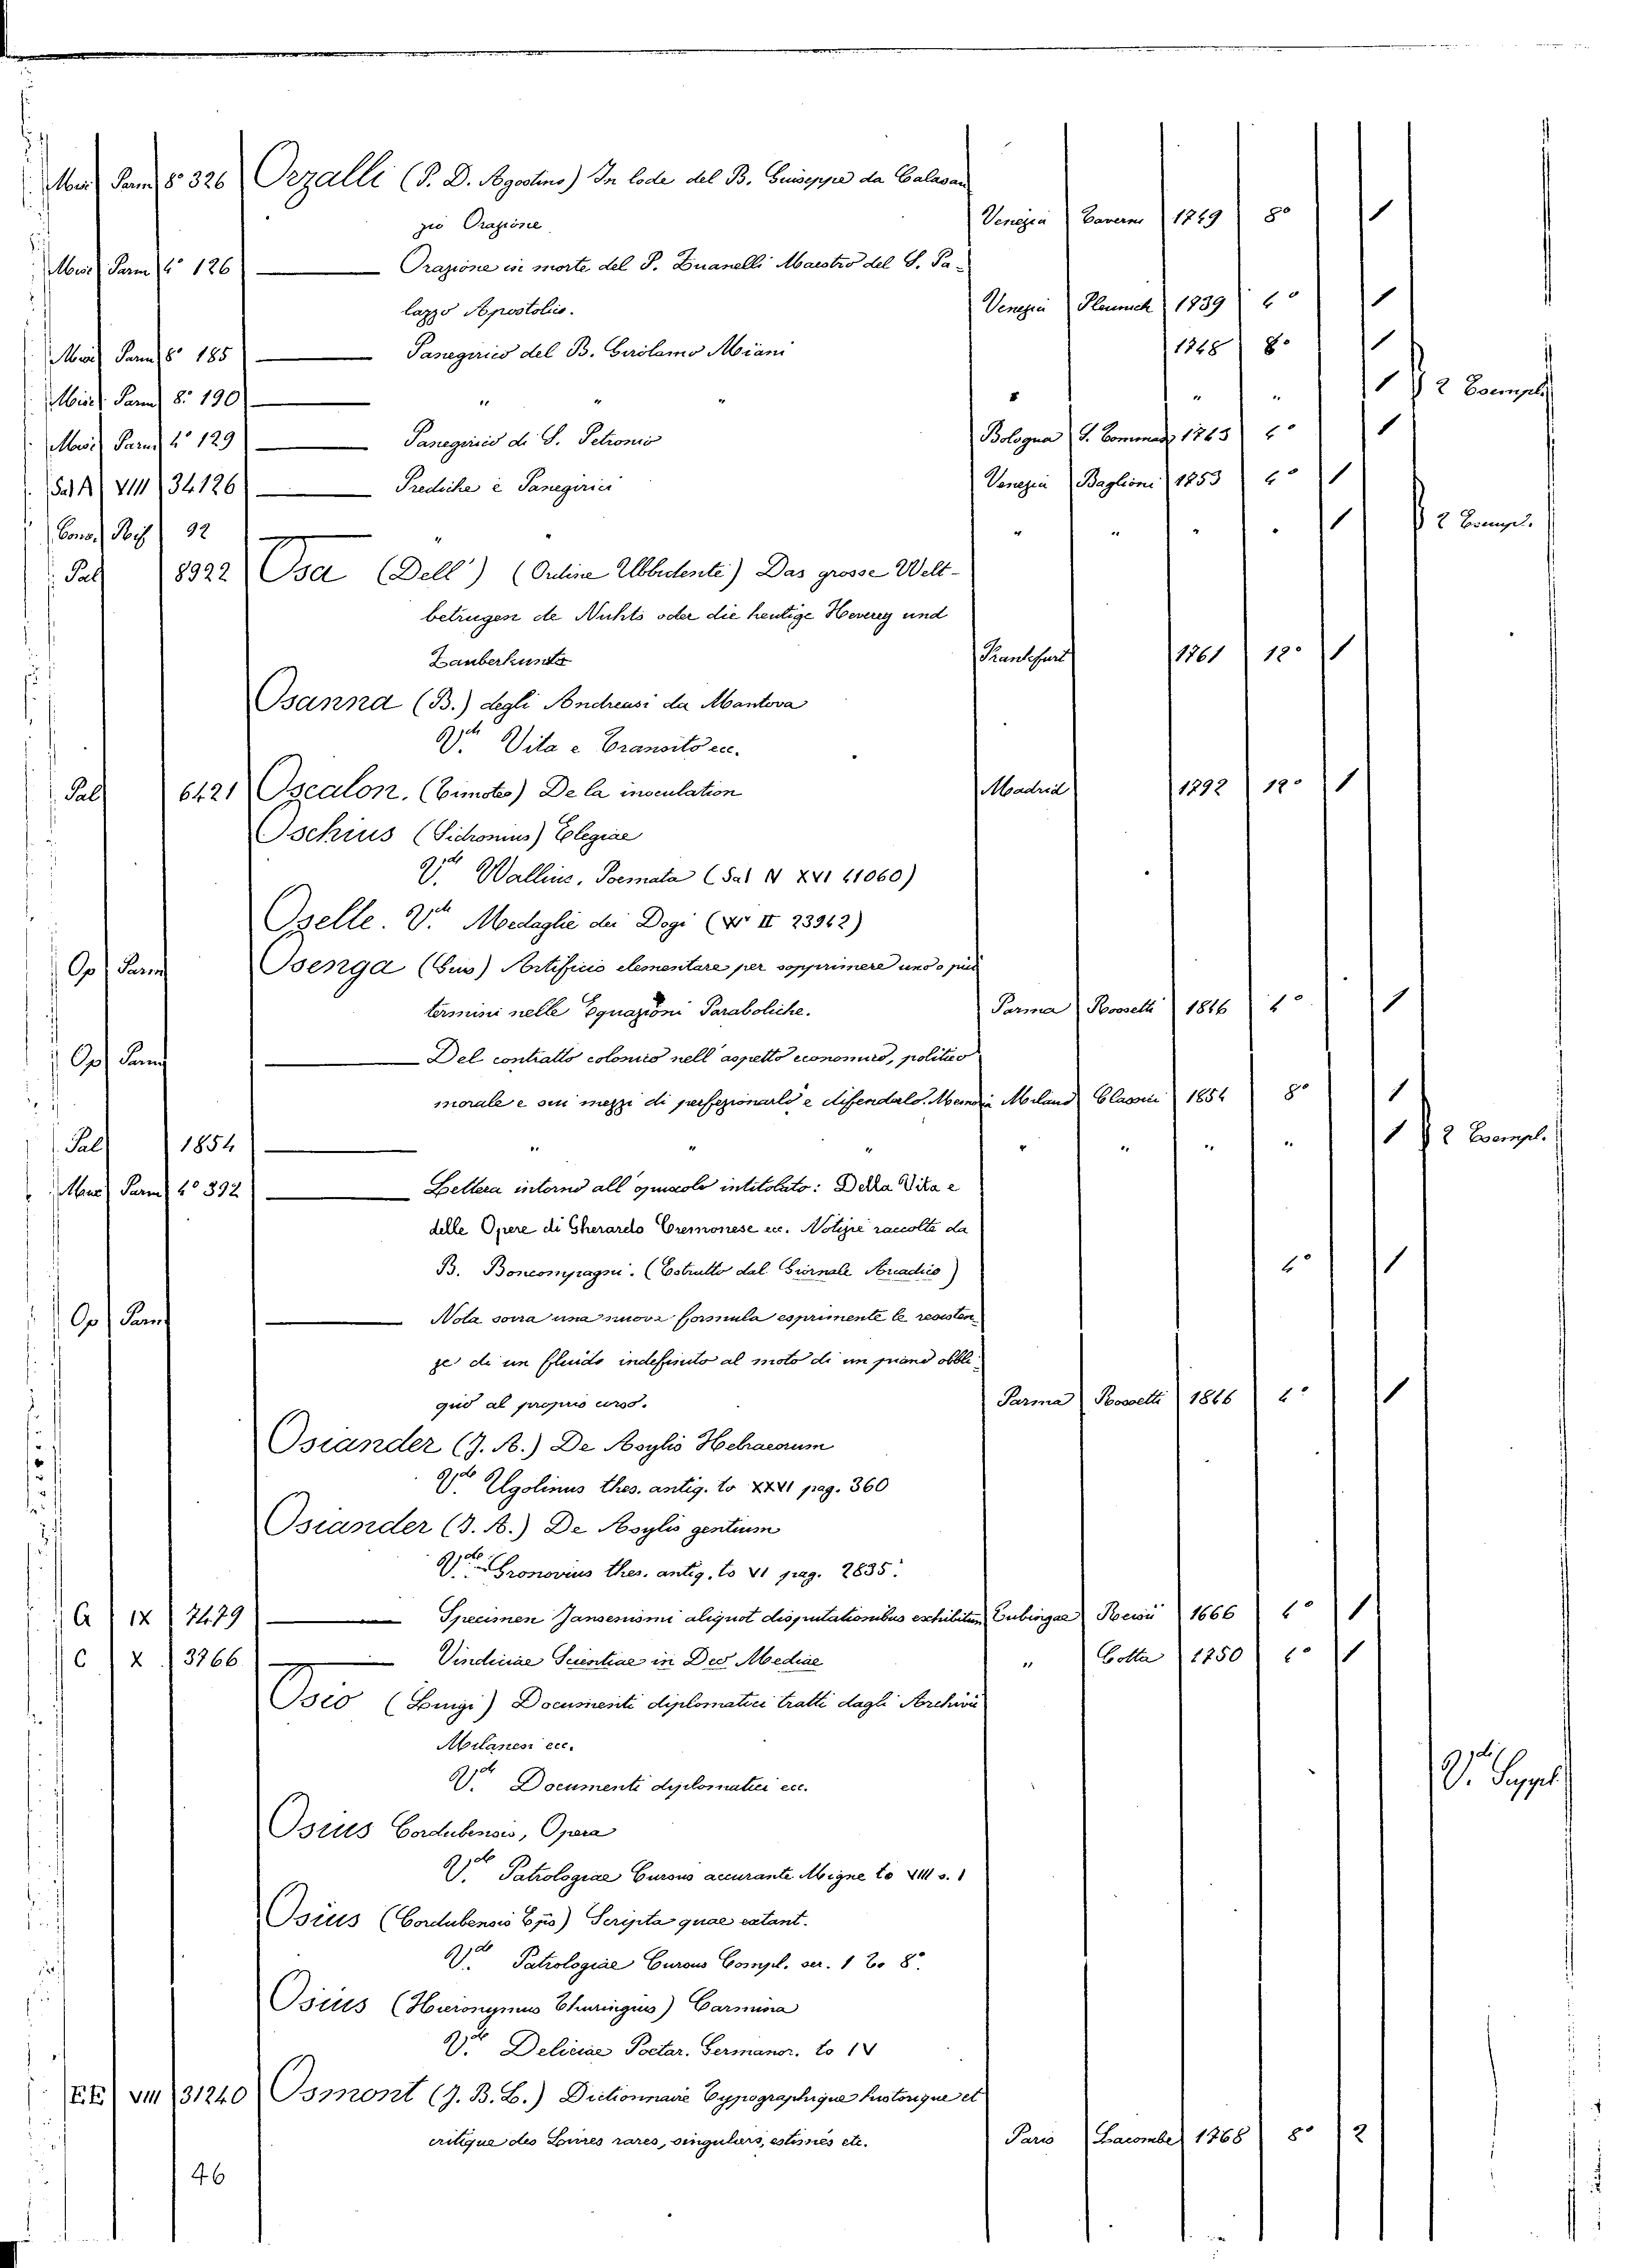 Misc Parm 8º 326 Orzalli (P. D. Agostino) In lode del B. Guiseppe da Calasan
zio Orazione Venezia Tavernin 1749 8º 1
Misc Parm 4º 126 — Orazione in morte del P. Zuanelli Maestro del S. Pa-
lazzo Apostolico. Venezia 1839 4º 1
Misc Parm 8º 185 — Panegirico del B. Girolamo Miani 1748 8º 1
Misc Parm 8º 190 — " " " " " " 1 } 2 Esempl.
Misc Parm 4º 129 — Panegirico di S. Petronio Bologna S. Tommaso 1763 4º 1
Sal N VIII 34126 — Prediche e Panegirici Venezia Baglioni 1853 4º 1
92 " " " " " 1 } 2 Esempl.
Pal 8922 Osa (Dell') (Ordine Ubbidente) Das grosse Welt-
betrugen de Nichts oder die heutige Heverey und
Zauberkunts Frankfurt 1761 12º 1
Osanna (B.) degli Andreasi da Mantova
V.de Vita e Transito ecc.
Pal 6421 Oscalon. (Timoteo) De la inoculation Madrid 1792 12º 1
Oschius (Sidronius) Elegiae
V.de Wallius. Poemata (Sal N XVI 41060)
Oselle. V.de Medaglie dei Dogi (II 23942)
Op Parm Osenga (Gius) Artificio elementare per sopprimere uno o più
termini nelle Equazioni Paraboliche. Parma Rossetti 1846 4º 1
Op Parm — Del contratto colonico nell'aspetto economico, politico
morale e sui mezzi di perfezionarlo e difenderlo. Memoria Milano Classici 1854 8º 1
Pal 1854 — " " " " " " " 1 } 2 Esempl.
Misc Parm 4º 392 — Lettera intorno all'opuscolo intitolato: Della Vita e
delle Opere di Gherardo Cremonese ecc. Notizie raccolte da
B. Boncompagni. (Estratto dal Giornale Arcadico) 4º 1
Op Parm — Nota sovra una nuova formula esprimente le resisten
ze di un fluido indefinito al moto di un piano obbli
quo al proprio corso. Parma Rossetti 1846 4º 1
Osiander (J. A.) De Asylis Hebraeorum
V.de Ugolinus thes. antig. to XXVI pag. 360
Osiander (J. A.) De Asylis gentium
V.de Gronovius thes. antig. to VI pag. 2835.
G IX 7479 — Specimen Jansenismi aliquot disputationibus exhibitum Tubingae 1666 4º 1
C X 3766 — Vindiciae Scientiae in Deo Mediae " Cotta 1750 4º 1
Osio (Luigi) Documenti diplomatici tratti dagli Archivii
Milanesi ecc.
V.de Documenti diplomatici ecc. V.di Suppl.
Osius Cordubensis, Opera
V.de Patrologiae Cursus accurante Migne to VIII s. 1
Osius (Cordubensis Epis) Scripta quae extant.
V.de Patrologiae Cursus Compl. ser. 1 To 8º.
Osius (Hieronymus Thuringius) Carmina
V.de Deliciae Poetar. Germanor. to IV
EE VIII 31240 Osmont (J. B. L.) Dictionnaire Typographique historique et
critique des Livres rares, singuliers, estimés etc. Paris Lacombe 1768 8º 2
46